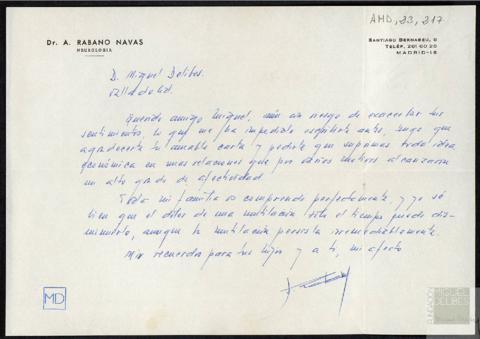 AMD, 33, 217
Dr. A. RABANO NAVAS
NEUROLOGIA
SANTIAGO BERNABEU, 8
TELÉF. 261 60 25
MADRID-16
D. Miguel Delibes.
Valladolid.
Querido amigo Miguel, aún con riesgo de exacerbar tus
sentimientos, lo que me ha impedido escribirte antes, tengo que
agradecerte tu amable carta y pedirte que suprimas toda idea
económica en unas relaciones que por varios motivos alcanzaron
un alto grado de afectividad.
Toda mi familia os comprende perfectamente, y yo sé
bien que el dolor de una mutilación solo el tiempo puede dis-
minuirlo, aunque la mutilación persista irremediablemente.
Mis recuerdos para tus hijos y a ti, mi afecto
MD
FUNDACIÓN
MIGUEL
DELIBES